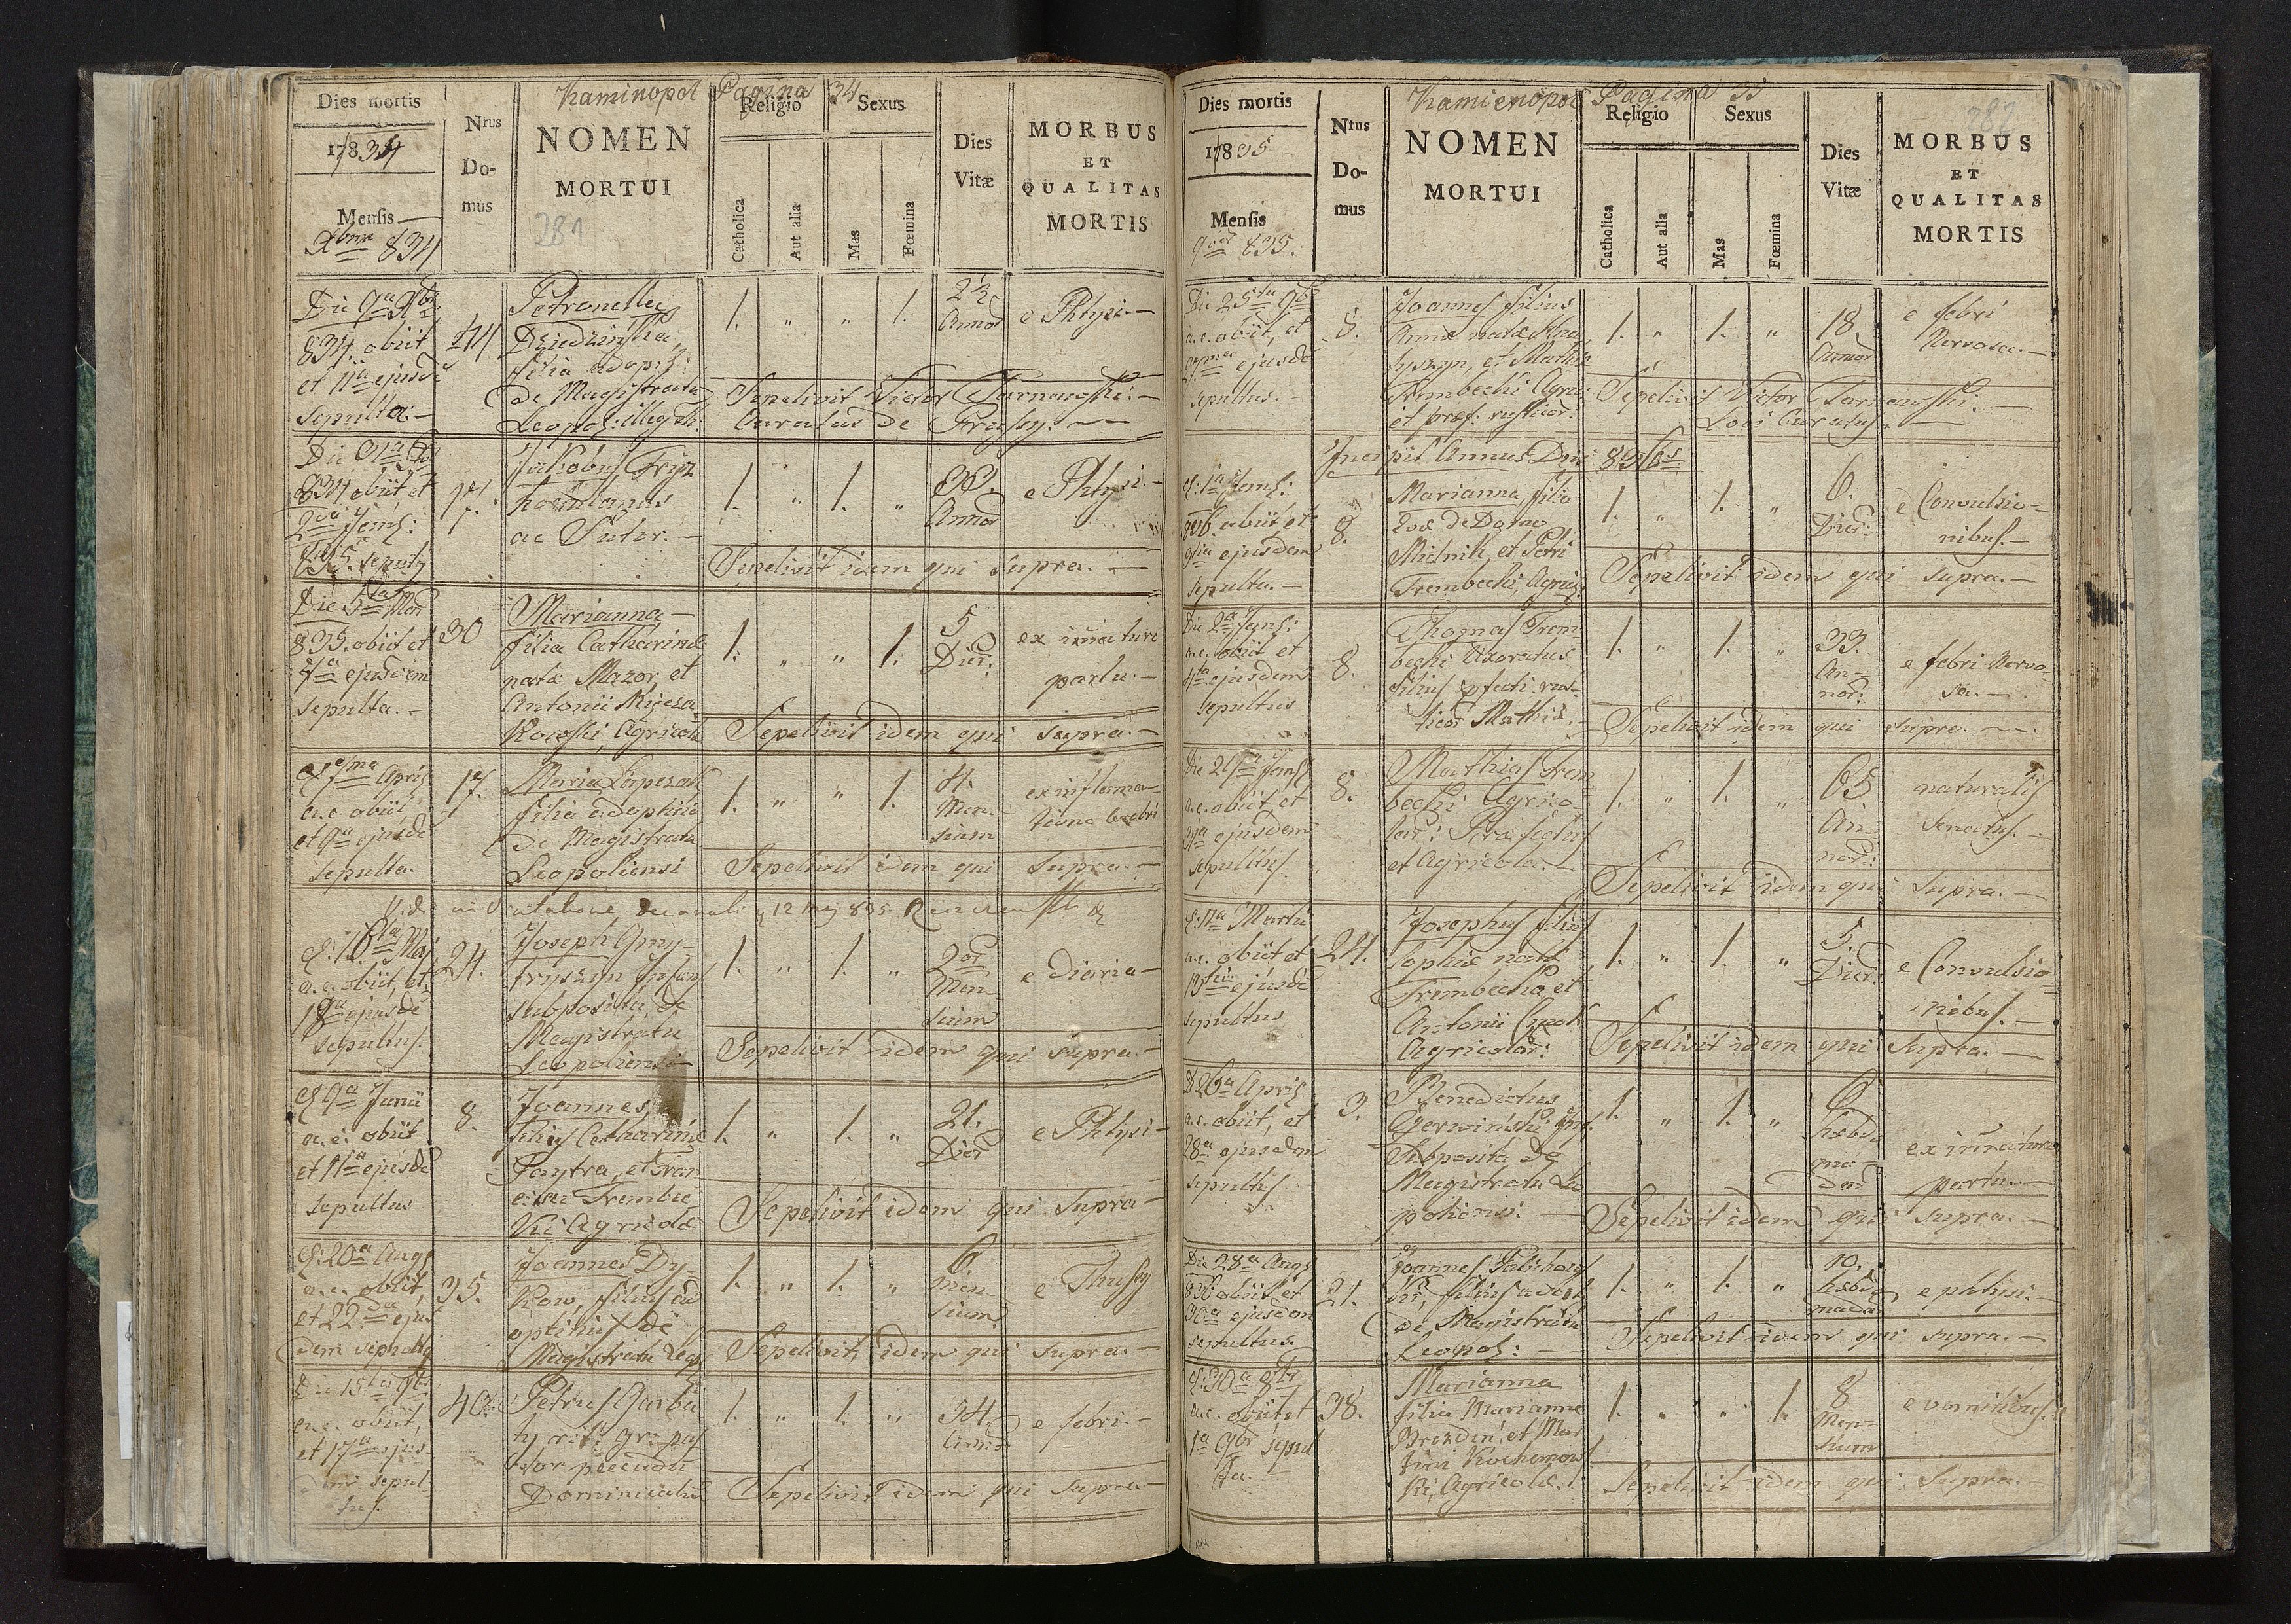 Kaminopol Pagina 34
Dies mortis
1834
Mensis
Xbris 834
Nrus
Do-
mus
NOMEN
MORTUI
281
Religio
Catholica
Aut alia
Sexus
Mas
Fœmina
Dies
Vitæ
MORBUS
ET
QUALITAS
MORTIS
Die 9a Xbr
834 obiit
et 11a ejusd
sepulta.
44
Petronella
filia adopt:
de Magistratu
Leopol:
1. " " 1.
2½
Annor
e Phtysi.
Sepelivit Victor Tarnawski.
Curatus de
834 obiit et
2da Jans:
835. sepult
17.
Jakobus
ac Sutor.
1. " 1. "
33
Annor
e Phtysi.
Sepelivit idem qui supra.
Die 5ta Mar
835. obiit et
7a ejusdem
sepulta.
30
Marianna
filia Catharinæ
natæ Mazor, et
Antonii
Agricolæ
1. " " 1.
5
Dier.
ex imaturo
partu.
Sepelivit idem qui supra.
d 7ma Apris
a.c. obiit
et 9a ejusd
sepulta.
17.
Maria
filia adoptiva
de Magistratu
Leopoliensi
1. " " 1.
4.
Men-
sium
ex inflama-
tione cerebri
Sepelivit idem qui supra.
12 Maj 835.
d: 16ta Maj
a.c. obiit, et
18a ejusd
sepultus.
24.
Joseph
subposita de
Magistratu
Leopoliensi
1. " 1. "
2or
Men-
sium
e diaria
Sepelivit idem qui supra.
d 9a Junii
a.c. obiit
et 11a ejusd
sepultus
8.
Joannes
filius Catharinæ
et Fran
cisci Trembec
ki Agricolæ
1. " 1. "
21.
Dier
e Phtysi
Sepelivit idem qui supra
d: 20a Augs
a.c. obiit,
et 22da ejus
dem sepult
35.
Joannes Dy-
kow, filius ad
optivus de
Magistratu Leop
1. " 1. "
6
men
sium
e Thussy
Sepelivit, idem qui supra.
a.c. obiit,
et 17a ejus
dem sepul
tus.
40.
Petrus Garba
ty rit. gr: pas
tor pecudu
Dominicalis
1. " 1. "
34.
Annor
e febri.
Sepelivit idem qui supra
Kamienopol Pagina 35
282
Dies mortis
1835
Mensis
9bris 835.
Nrus
Do-
mus
NOMEN
MORTUI
Religio
Catholica
Aut alia
Sexus
Mas
Fœmina
Dies
Vitæ
MORBUS
ET
QUALITAS
MORTIS
Die 25ta 9br
a.c. obiit, et
27ma ejusd
sepultus.
8.
Joannes filius
Annæ natæ
et Mathiæ
Trembecki Agric:
et præf: rusticor:
1. " 1. "
18.
Annor
e febri
Nervosa.
Sepelivit Victor Tarnawski.
Loci Curatus.
Incipit Annus Dni 836
d: 1a Jans:
836. obiit et
3tia ejusdem
sepulta.
8.
Marianna, filia
Evæ de Domo
Mielnik, et Petri
Trembecki, Agric:
1. " 1. "
6.
Dier:
e Convulsio-
nibus.
Sepelivit idem qui supra.
Die 2a Jans:
a.c. obiit et
4ta ejusdem
sepultus
8.
Thomas Trem-
becki Uxoratus
filius præfecti rus-
ticor Mathiæ.
1. " 1. "
33.
An-
nor:
e febri Nervo-
sa.
Sepelivit idem qui supra.
Die 29a Jans
a.c. obiit et
31a ejusdem
sepultus
8.
Mathias Trem
becki Agrico-
lar: Præfectus
et Agricola.
1. " 1. "
65
An-
nor:
naturalis
Senectus.
Sepelivit idem qui supra.
d. 11a Martii
a.c. obiit et
13tia ejusd
sepultus
24.
Josephus filius
Sophiæ natæ
Trembecka, et
Antonii
Agricolar:
1. " 1. "
5.
Dier:
e Convulsio-
nibus.
Sepelivit idem qui supra.
d 26a Apris
a.c. obiit, et
28a ejusdem
sepultus
3.
Benedictus
Czerwinski inf.
Subposita de
Magistratu Leo
poliensi.
1. " 1. "
6
hebdo
ma-
dar
ex imaturo
partu.
Sepelivit idem qui supra.
Die 28a Augs
836 obiit et
30a ejusdem
sepultus.
21.
Joannes Palichows
ki, filius adopt
de Magistratu
Leopol:
1. " 1. "
10.
hebdo
madar
e phtysi.
Sepelivit idem qui supra.
d: 30a 8br
a.c. obiit et
1a 9br sepul
ta.
38.
Marianna
filia Mariannæ
et Mar
tini
ki, Agricolæ.
1. " " 1.
8
Men-
sium
e vomitibus.
Sepelivit idem qui supra.